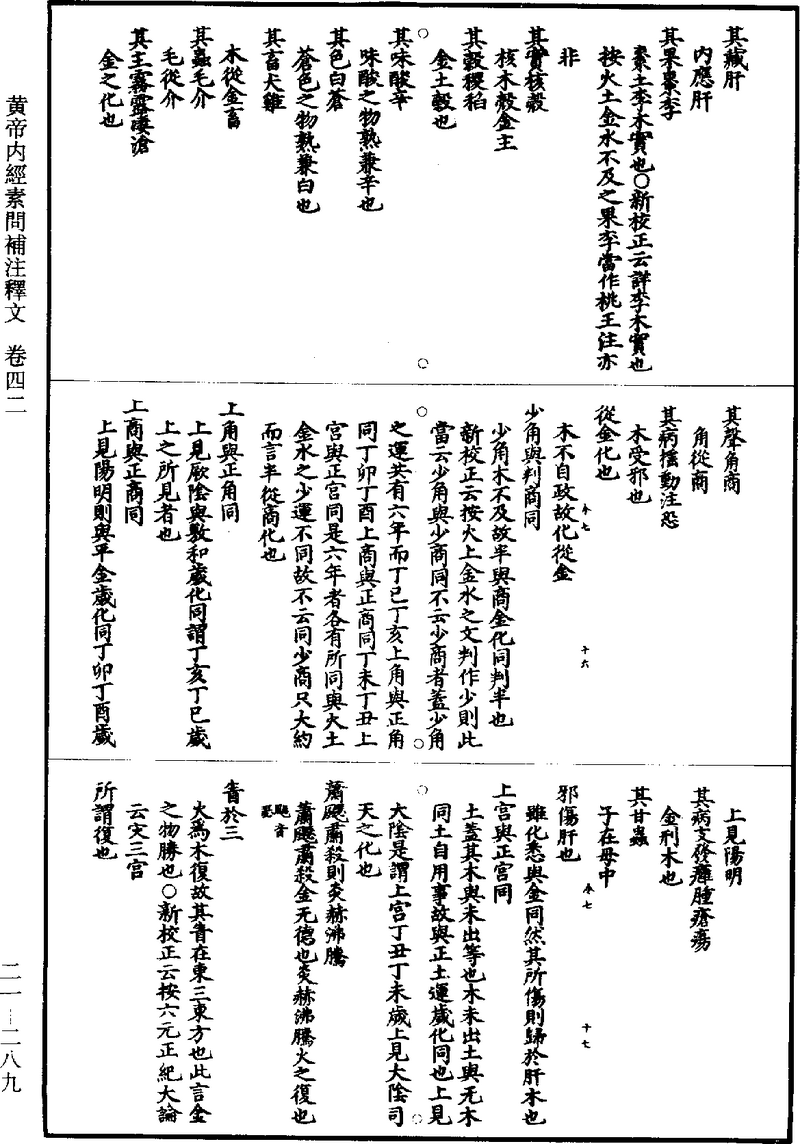 其藏肝
内應肝
其果棗李
棗土李木實也○新校正云詳李木實也
按火土金水不及之果李當作桃王注亦
非
其實核殼
核木殼金主
其穀稷稻
金土穀也
其味酸辛
味酸之物熟兼辛也
其色白蒼
蒼色之物熟兼白也
其畜犬雞
木從金畜
其蟲毛介
毛從介
其主霧露凄滄
金之化也
其聲角商
角從商
其病摇動注恐
木受邪也
從金化也
木不自政故化從金
少角與判商同
少角木不及故半與商金化同判半也
新校正云按火土金水之文判作少則此
當云少角與少商同不云少商者蓋少角
之運共有六年而丁巳丁亥上角與正角
同丁卯丁酉上商與正商同丁未丁丑上
宮與正宮同是六年者各有所同與火土
金水之少運不同故不云同少商只大約
而言半從商化也
上角與正角同
上見厥陰與敷和歲化同謂丁亥丁巳歲
上之所見者也
上商與正商同
上見陽明則與平金歲化同丁卯丁酉歲
上見陽明
其病支發癰腫瘡瘍
金刑木也
其甘蟲
子在母中
邪傷肝也
雖化悉與金同然其所傷則歸於肝木也
上宮與正宮同
土蓋其木與未出等也木未出土與无木
同土自用事故與正土運歲化同也上見
大陰是謂上宮丁丑丁未歲上見大陰司
天之化也
蕭飋肅殺則炎赫沸騰
蕭飋肅殺金无德也炎赫沸騰火之復也
飋音
瑟
眚於三
火爲木復故其眚在東三東方也此言金
之物勝也○新校正云按六元正紀大論
云灾三宮
所謂復也
黄帝内經素問補注釋文　卷四二
二一—二八九
本七
十六
本七
十七